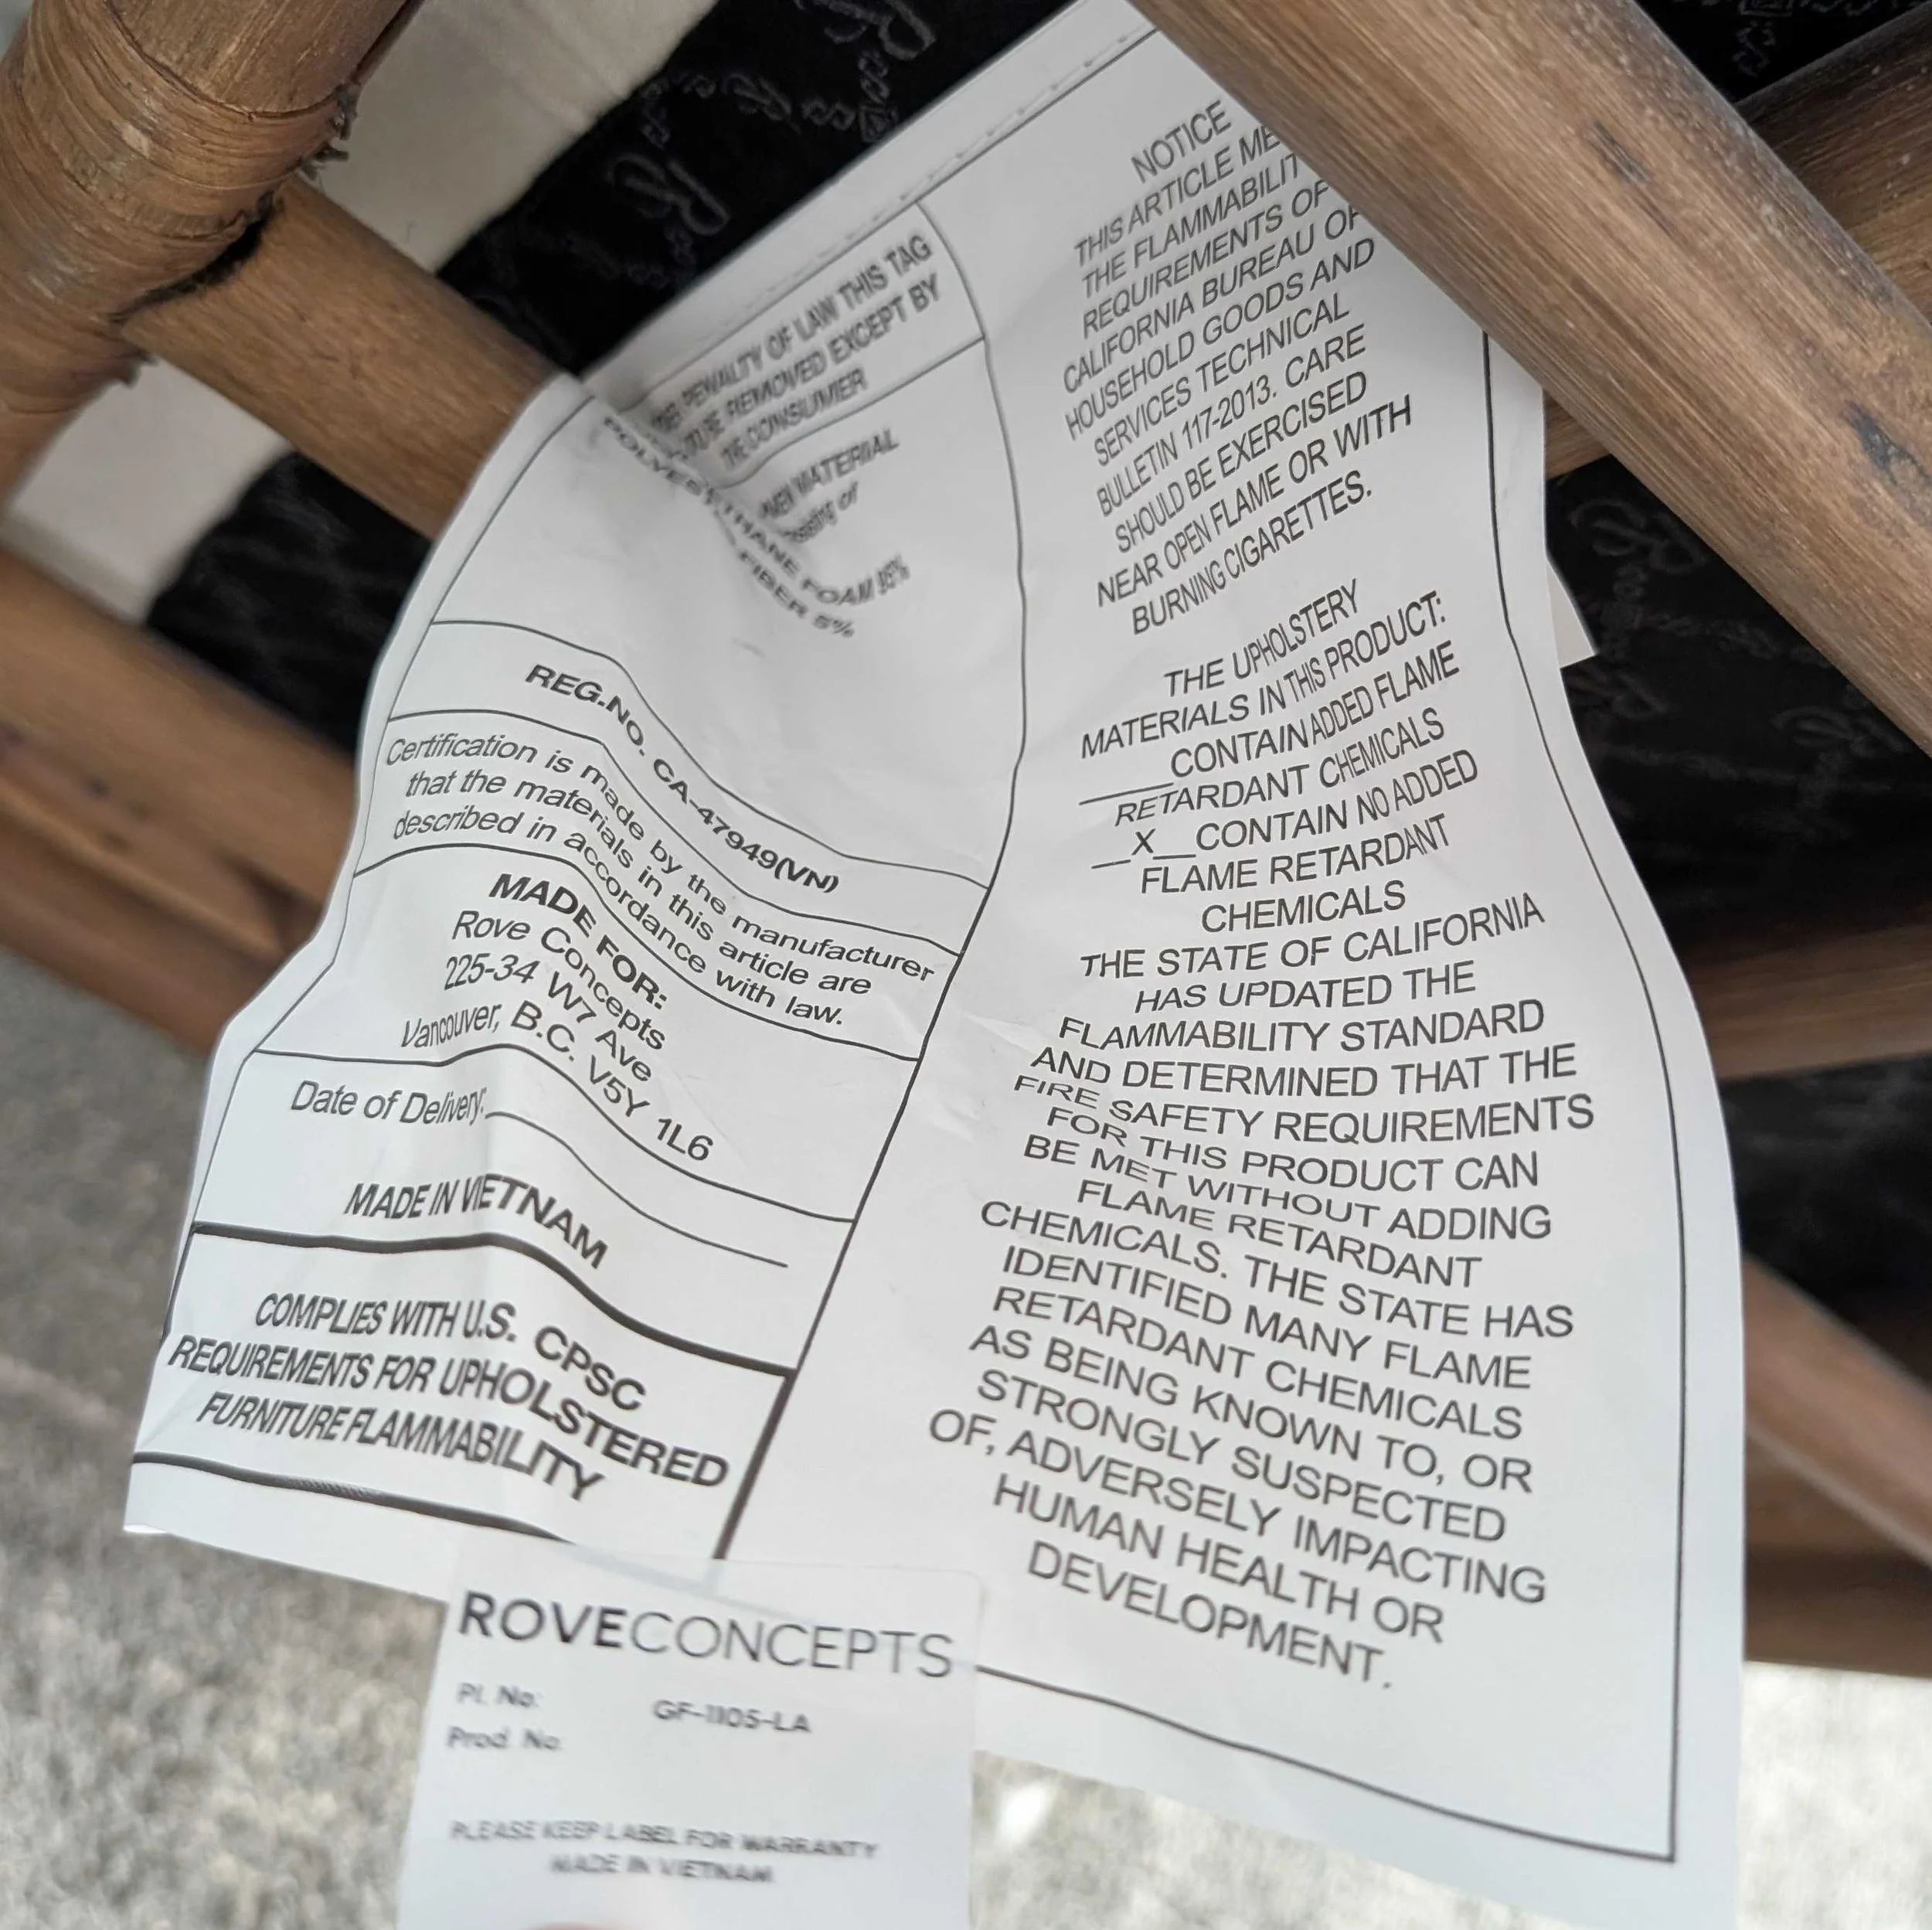 PENALTY OF LAW THIS TAG
REMOVED EXCEPT BY
THE CONSUMER
MATERIAL
of
FOAM 95%
FIBER 5%
REG.NO. CA-47949(VN)
Certification is made by the manufacturer
that the materials in this article are
described in accordance with law.
MADE FOR:
Rove Concepts
225-34 W7 Ave
Vancouver, B.C. V5Y 1L6
Date of Delivery:
MADE IN VIETNAM
COMPLIES WITH U.S. CPSC
REQUIREMENTS FOR UPHOLSTERED
FURNITURE FLAMMABILITY
NOTICE
THIS ARTICLE ME
THE FLAMMABILIT
REQUIREMENTS OF
CALIFORNIA BUREAU OF
HOUSEHOLD GOODS AND
SERVICES TECHNICAL
BULLETIN 117-2013. CARE
SHOULD BE EXERCISED
NEAR OPEN FLAME OR WITH
BURNING CIGARETTES.
THE UPHOLSTERY
MATERIALS IN THIS PRODUCT:
_____CONTAIN ADDED FLAME
RETARDANT CHEMICALS
__X__CONTAIN NO ADDED
FLAME RETARDANT
CHEMICALS
THE STATE OF CALIFORNIA
HAS UPDATED THE
FLAMMABILITY STANDARD
AND DETERMINED THAT THE
FIRE SAFETY REQUIREMENTS
FOR THIS PRODUCT CAN
BE MET WITHOUT ADDING
FLAME RETARDANT
CHEMICALS. THE STATE HAS
IDENTIFIED MANY FLAME
RETARDANT CHEMICALS
AS BEING KNOWN TO, OR
STRONGLY SUSPECTED
OF, ADVERSELY IMPACTING
HUMAN HEALTH OR
DEVELOPMENT.
ROVECONCEPTS
PI. No: GF-1105-LA
Prod. No:
PLEASE KEEP LABEL FOR WARRANTY
MADE IN VIETNAM